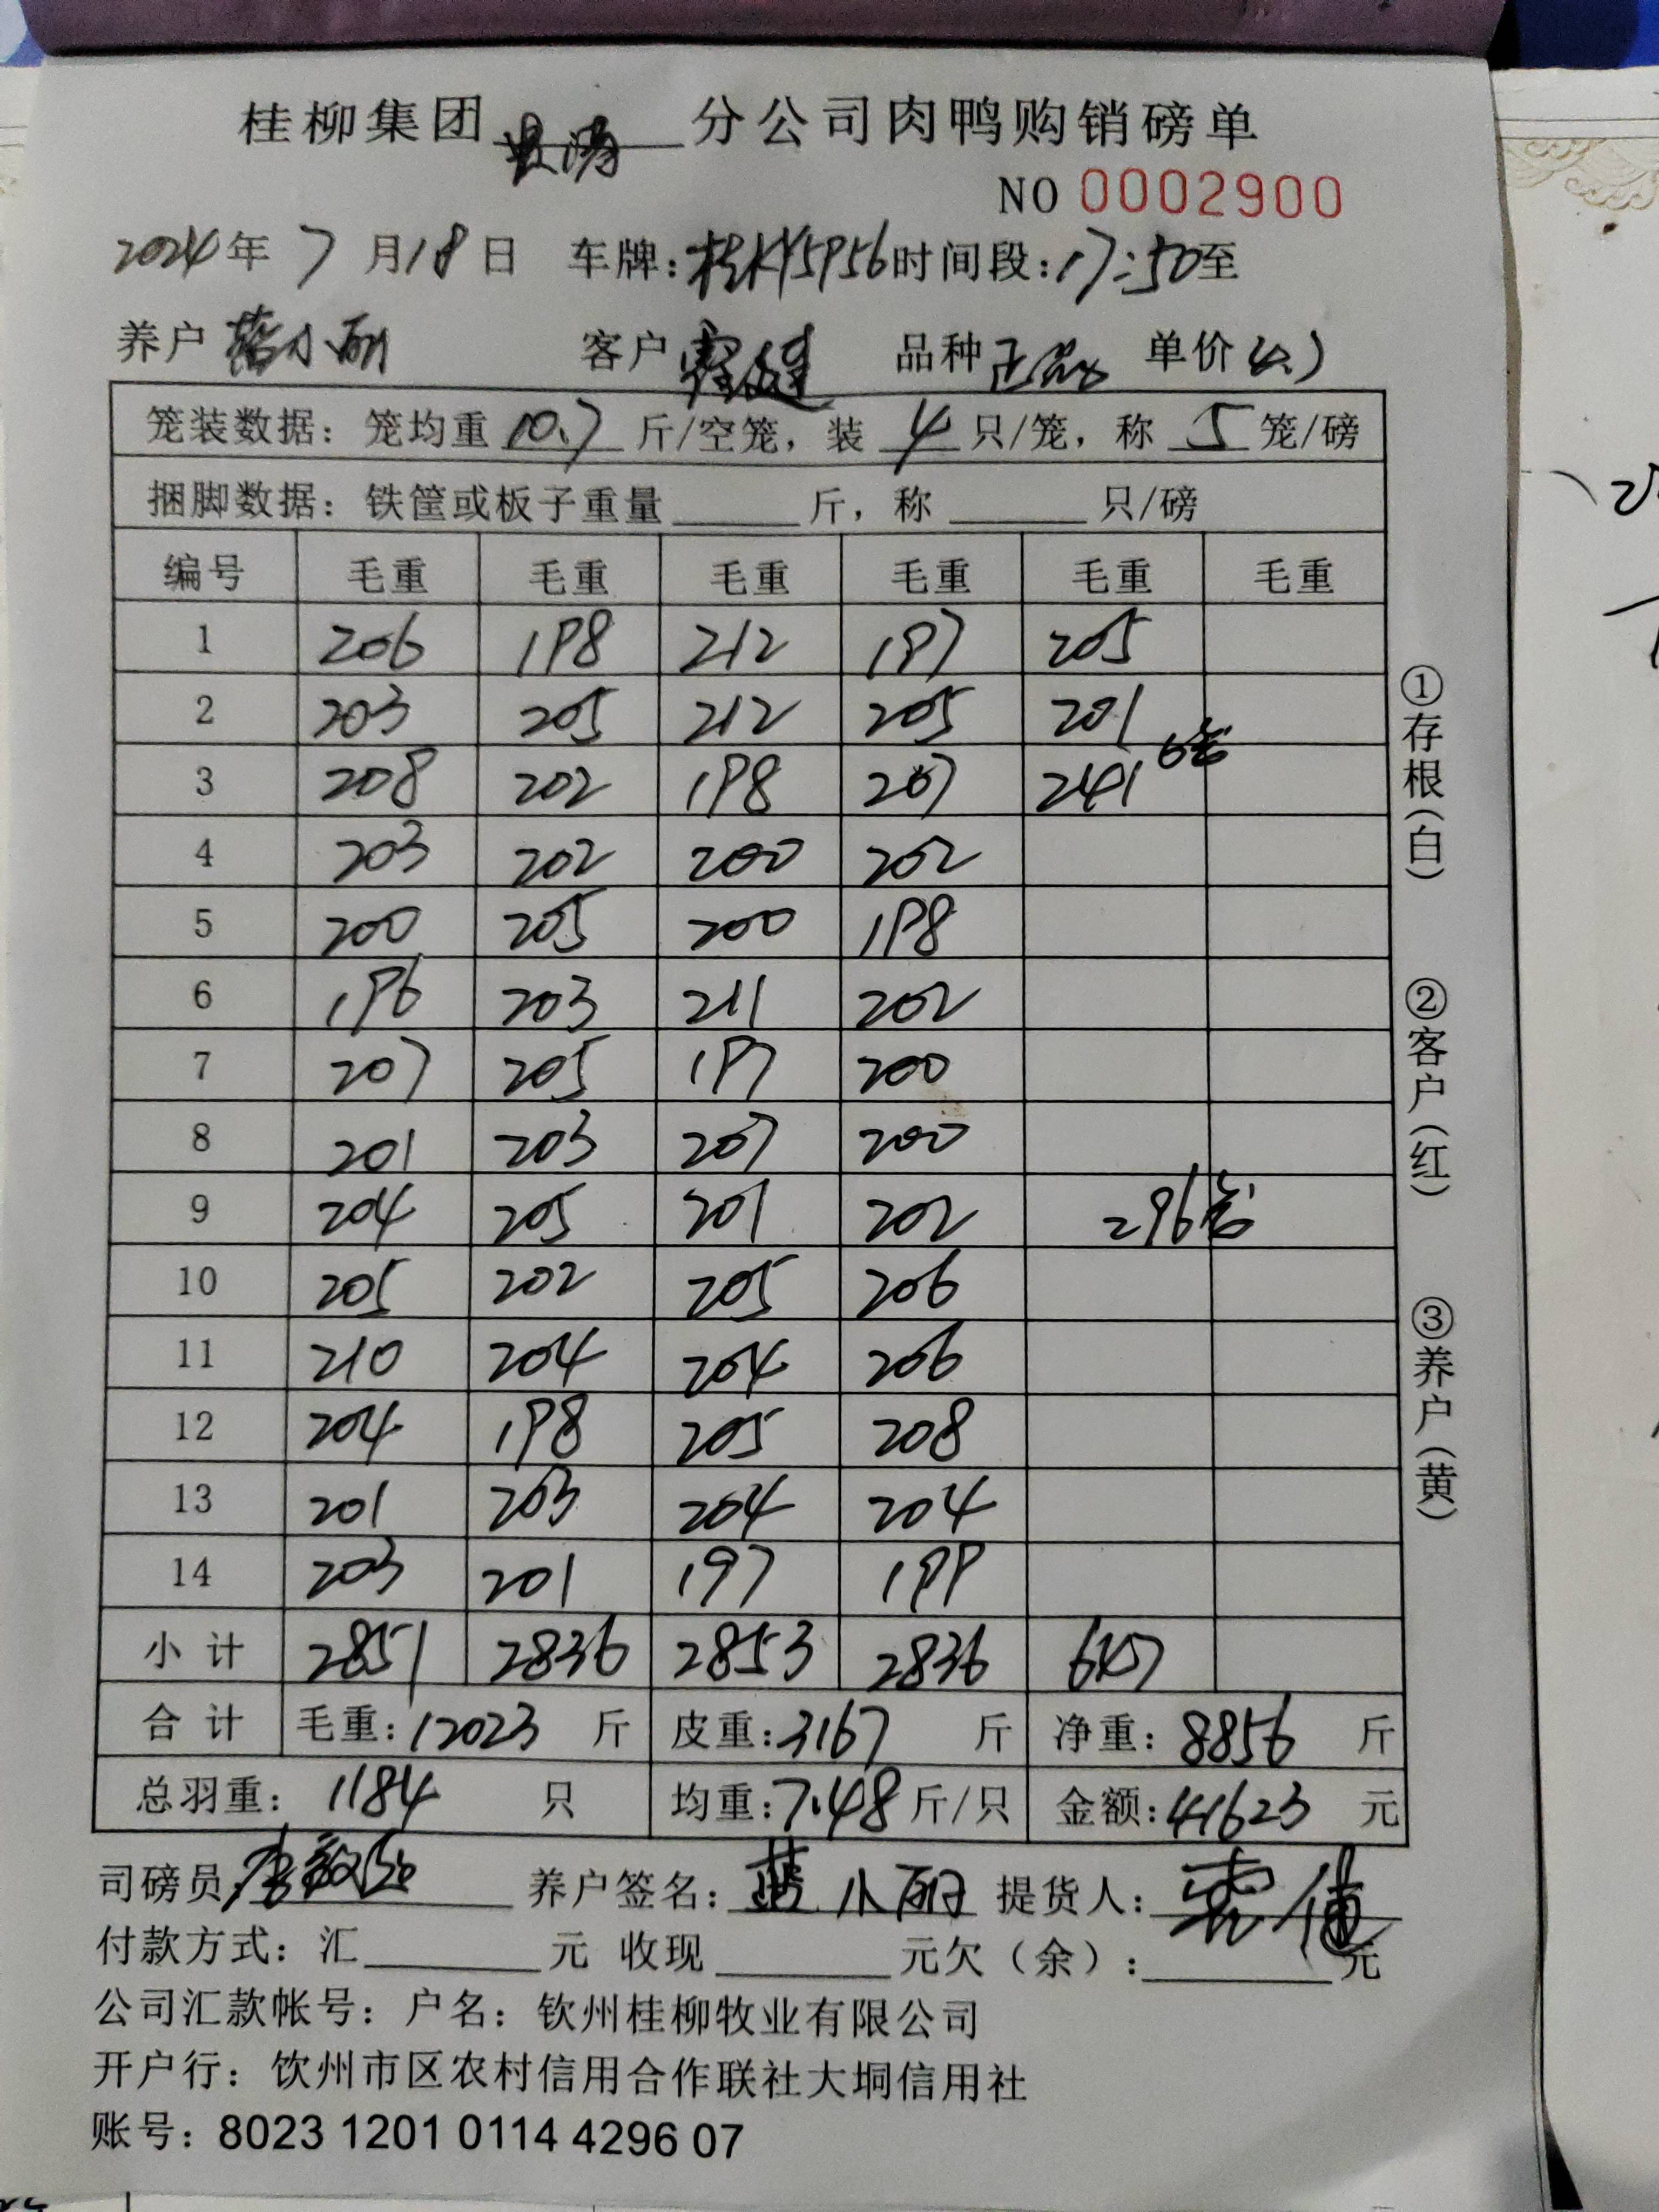 桂柳集团 分公司肉鸭购销磅单
NO 0002900
2024年 7 月 18 日 车牌: 时间段:17:50至
养户 小丽 客户 品种 正品 单价 4.7
笼装数据：笼均重 10.7 斤/空笼，装 4 只/笼，称 5 笼/磅
捆脚数据：铁筐或板子重量______斤，称______只/磅
编号 毛重 毛重 毛重 毛重 毛重 毛重
1 206 198 212 197 205
2 203 205 212 205 201
3 208 202 198 207 241 6笼
4 203 202 200 202
5 200 205 200 198
6 196 203 211 202
7 207 205 197 200
8 201 203 207 200
9 204 205 201 202 296笼
10 205 202 205 206
11 210 204 204 206
12 204 198 205 208
13 201 203 204 204
14 203 201 197 199
小计 2851 2836 2853 2836 647
合计 毛重:12023 斤 皮重:3167 斤 净重:8856 斤
总羽重: 1184 只 均重:7.48斤/只 金额:41623 元
司磅员: 养户签名: 小丽 提货人:
付款方式：汇______元 收现______元欠（余）:______元
公司汇款帐号：户名：钦州桂柳牧业有限公司
开户行：饮州市区农村信用合作联社大垌信用社
账号：8023 1201 0114 4296 07
①存根(白)
②客户(红)
③养户(黄)